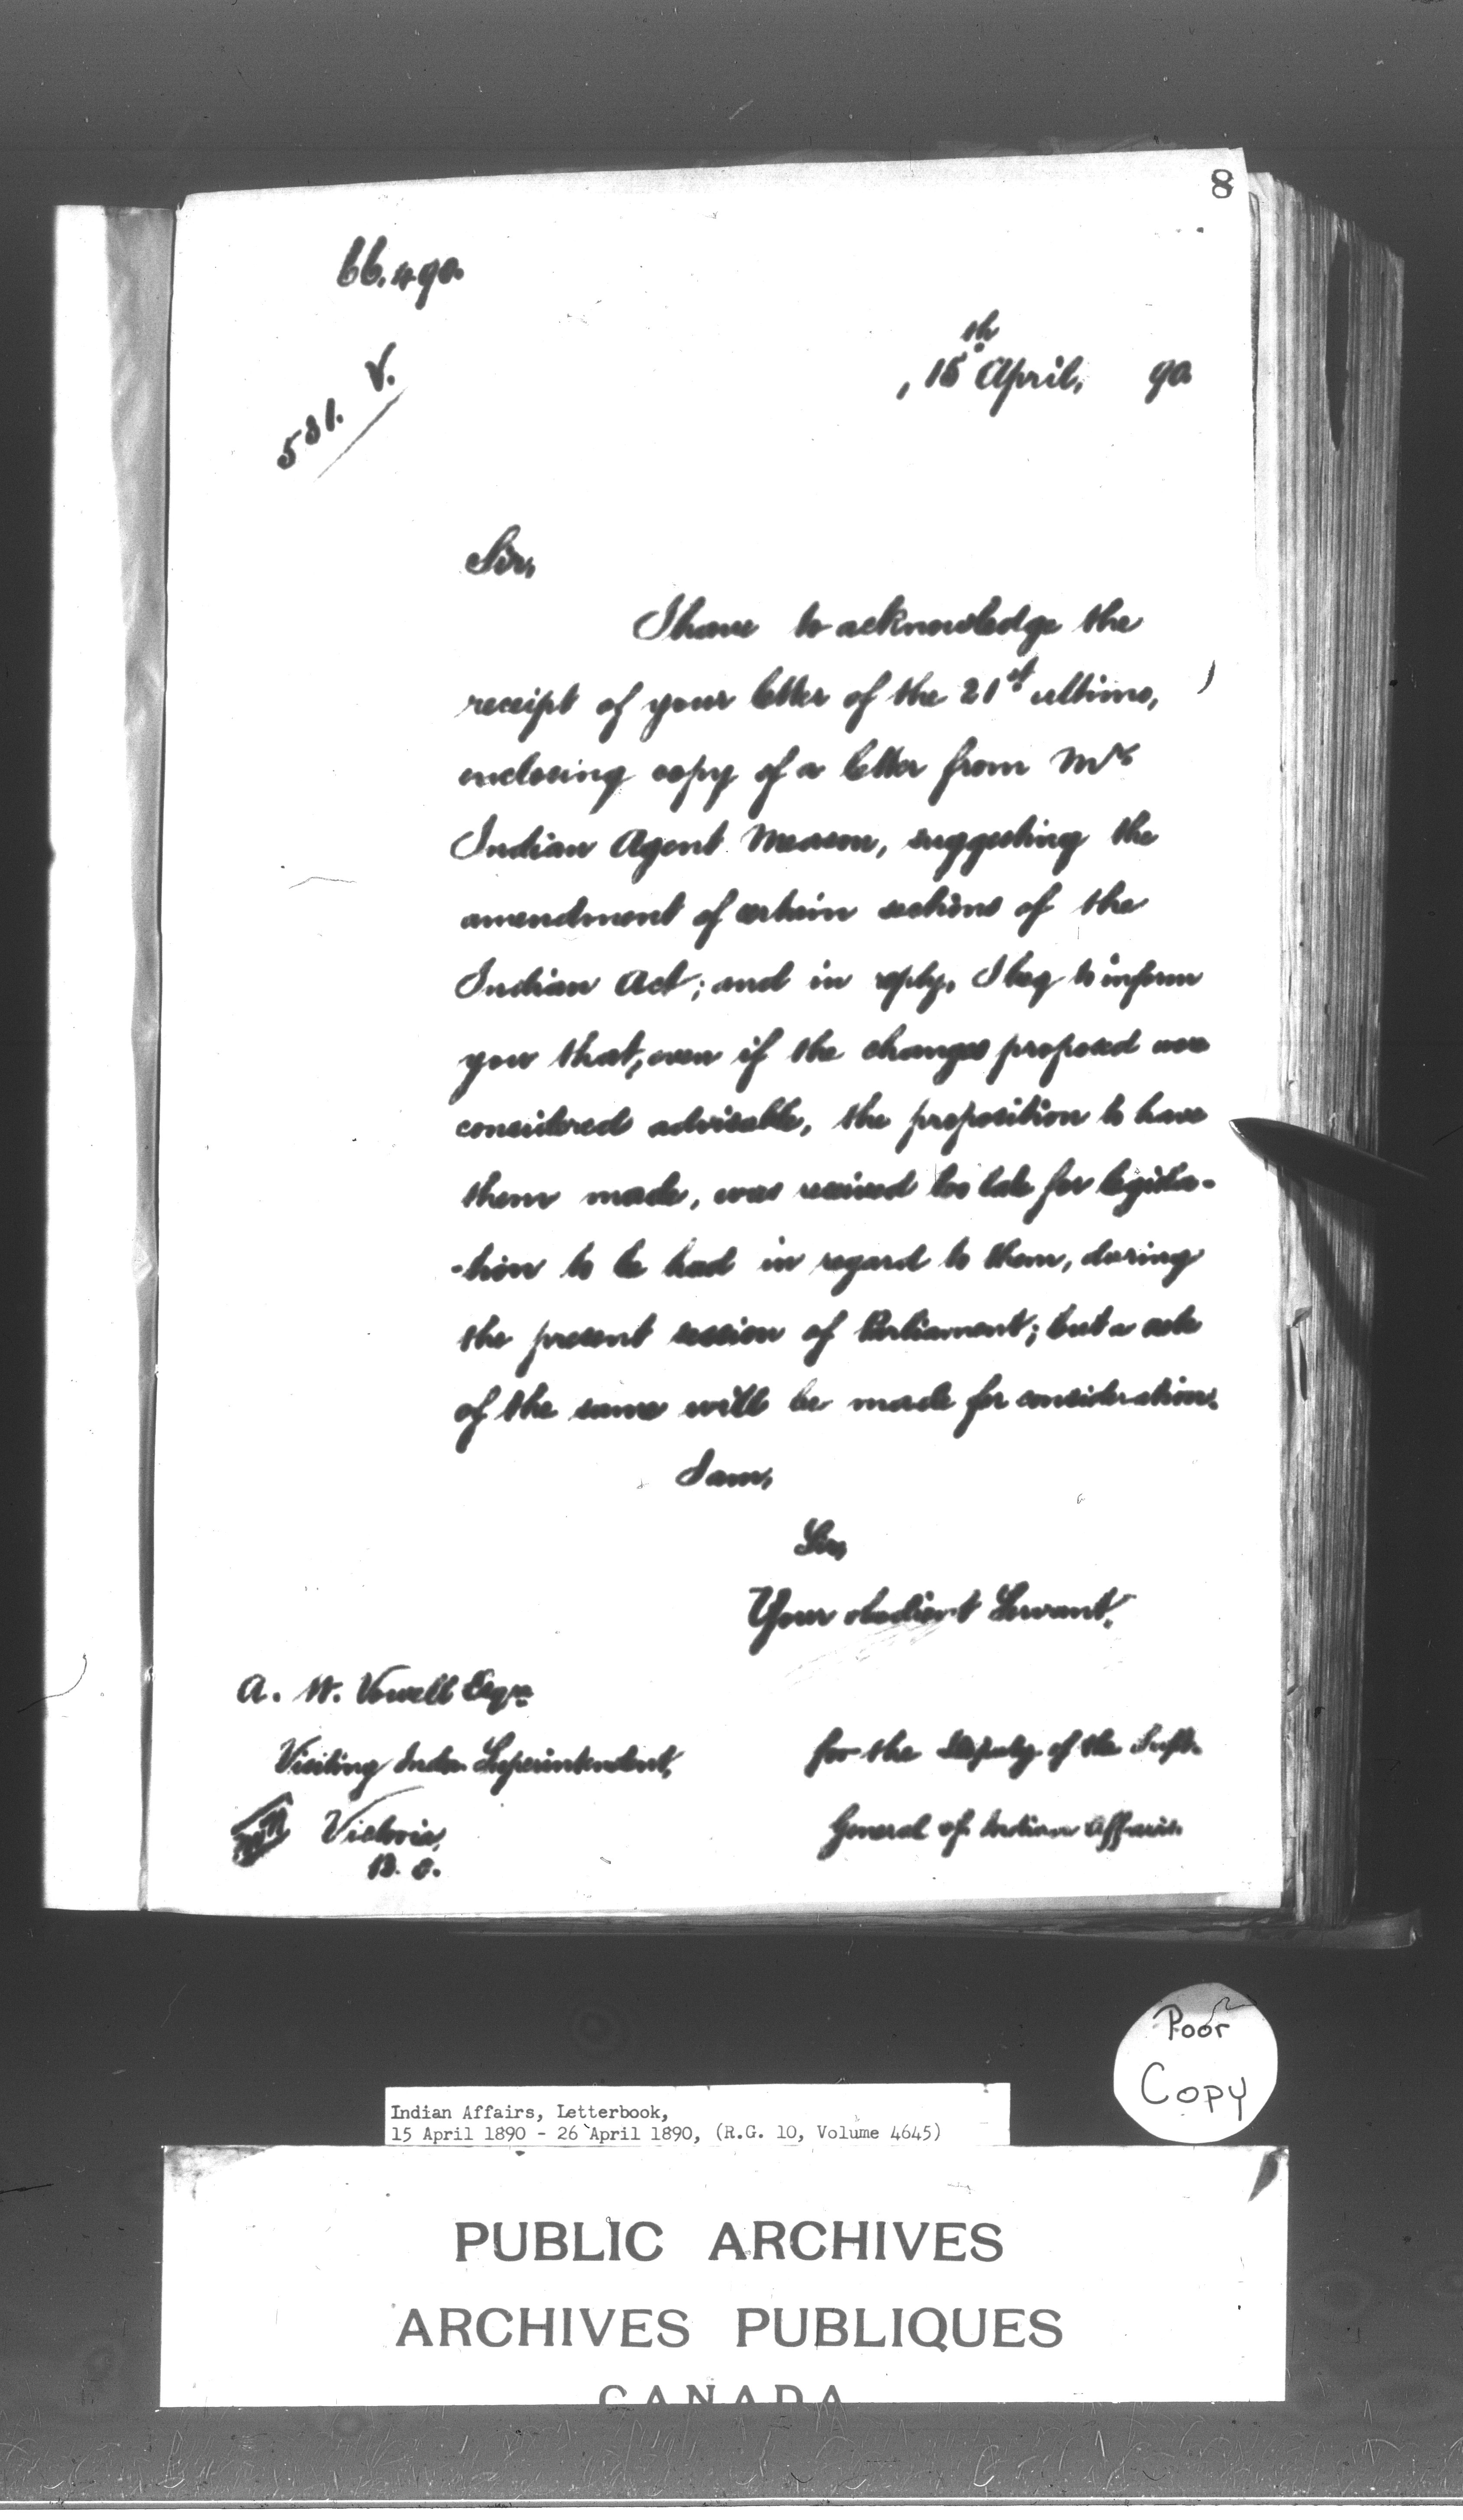 8
66.490.
581. V.
15th April, 90
Sir,
I have to acknowledge the
receipt of your letter of the 21st ultimo,
enclosing copy of a letter from Mr
Indian Agent Meason, suggesting the
amendment of certain sections of the
Indian Act; and in reply, I beg to inform
you that, even if the changes proposed were
considered advisable, the proposition to have
them made, was received too late for legisla-
-tion to be had in regard to them, during
the present session of Parliament; but a note
of the same will be made for consideration.
I am,
Sir,
Your obedient Servant,
A. W. Vowell Esqre
Visiting Indn Superintendent,
Victoria,
B. C.
for the Deputy of the Supt.
General of Indian Affairs.
Poor
Copy
Indian Affairs, Letterbook,
15 April 1890 - 26 April 1890, (R.G. 10, Volume 4645)
PUBLIC ARCHIVES
ARCHIVES PUBLIQUES
CANADA